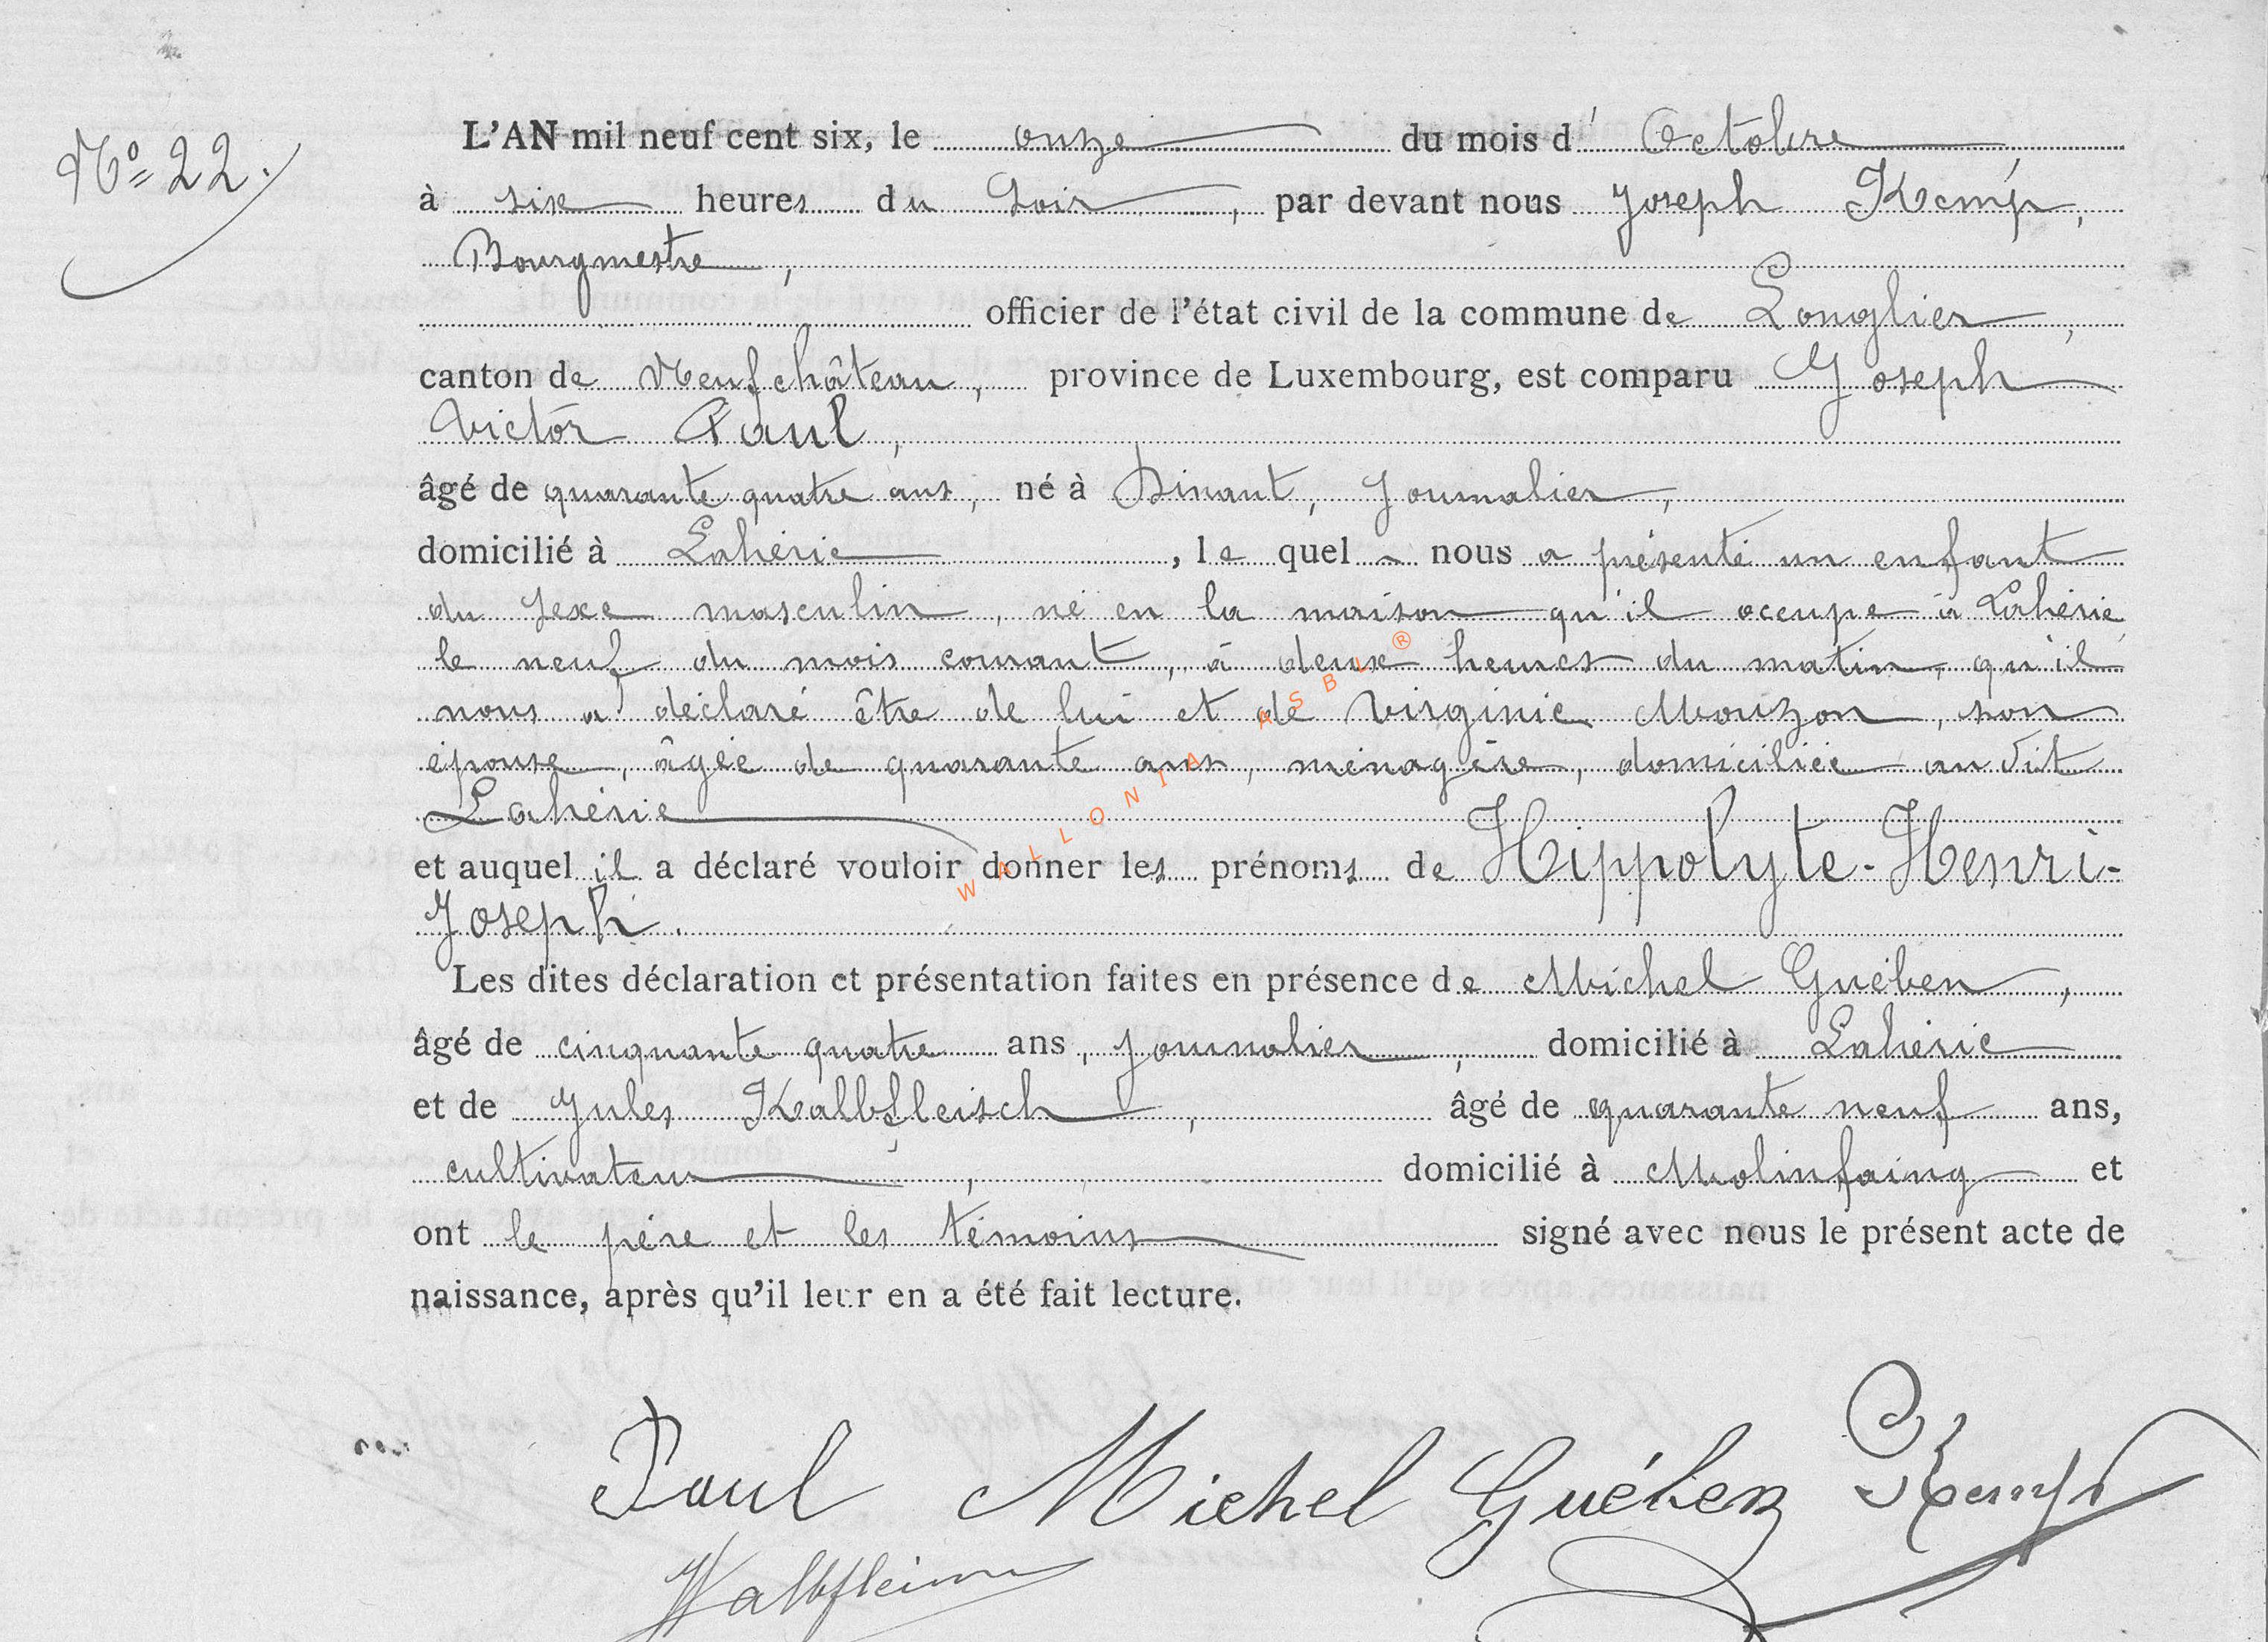 Nº 22.
L'AN mil neuf cent six, le onze du mois d' Octobre
à six heures du Soir, par devant nous Joseph Kemp,
Bourgmestre,
officier de l'état civil de la commune de Longlier,
canton de Neufchâteau, province de Luxembourg, est comparu Joseph
Victor Paul,
âgé de quarante quatre ans, né à Dinant, Journalier,
domicilié à Lahérie, le quel nous a présenté un enfant
du sexe masculin, né en la maison qu'il occupe à Lahérie
le neuf du mois courant, à deux heures du matin, qu'il
nous a déclaré être de lui et de Virginie Morizon, son
épouse, âgée de quarante ans, ménagère, domiciliée au dit
Lahérie
et auquel il a déclaré vouloir donner les prénoms de Hippolyte-Henri-
Joseph.
Les dites déclaration et présentation faites en présence de Michel Guében,
âgé de cinquante quatre ans, journalier, domicilié à Lahérie
et de Jules Kalbfleisch, âgé de quarante neuf ans,
cultivateur, domicilié à Molinfaing et
ont le père et les témoins signé avec nous le présent acte de
naissance, après qu'il leur en a été fait lecture.
Paul Michel Guében Kemp
WALLONIA ASBL ®